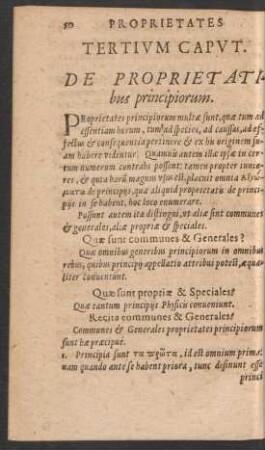 50 PROPRIETATES
TERTIVM CAPVT.
DE PROPRIETATI-
bus principiorum.
PRoprietates principiorum multæ sunt, quæ tum ad
essentiam horum, tum ad species, ad caussas, ad ef-
fectus & consequentia pertinere & ex his originem su-
am habere videntur. Quamuis autem illæ ipsæ in cer-
tum numerum contrahi possent: tamen propter iunio-
res, & quia harū magnus vsus est, placuit omnia
de principijs, quæ aliquid proprietatis de princi-
pijs in se habent, hoc loco enumerare.
Possunt autem ita distingui, vt aliæ sint communes
& generales, aliæ propriæ & speciales.
Quæ sunt communes & Generales?
Quæ omnibus generibus principiorum in omnibus
rebus, quibus principij appellatio attribui potest, æqua-
liter conueniunt.
Quæ sunt propriæ & Speciales?
Quæ tantum principijs Physicis conueniunt.
Recita communes & Generales?
Communes & Generales proprietates principiorum
sunt hæ præcipuæ.
1. Principia sunt τὰ πρῶτα, id est omnium prima:
nam quando ante se habent priora, tunc desinunt esse
princi